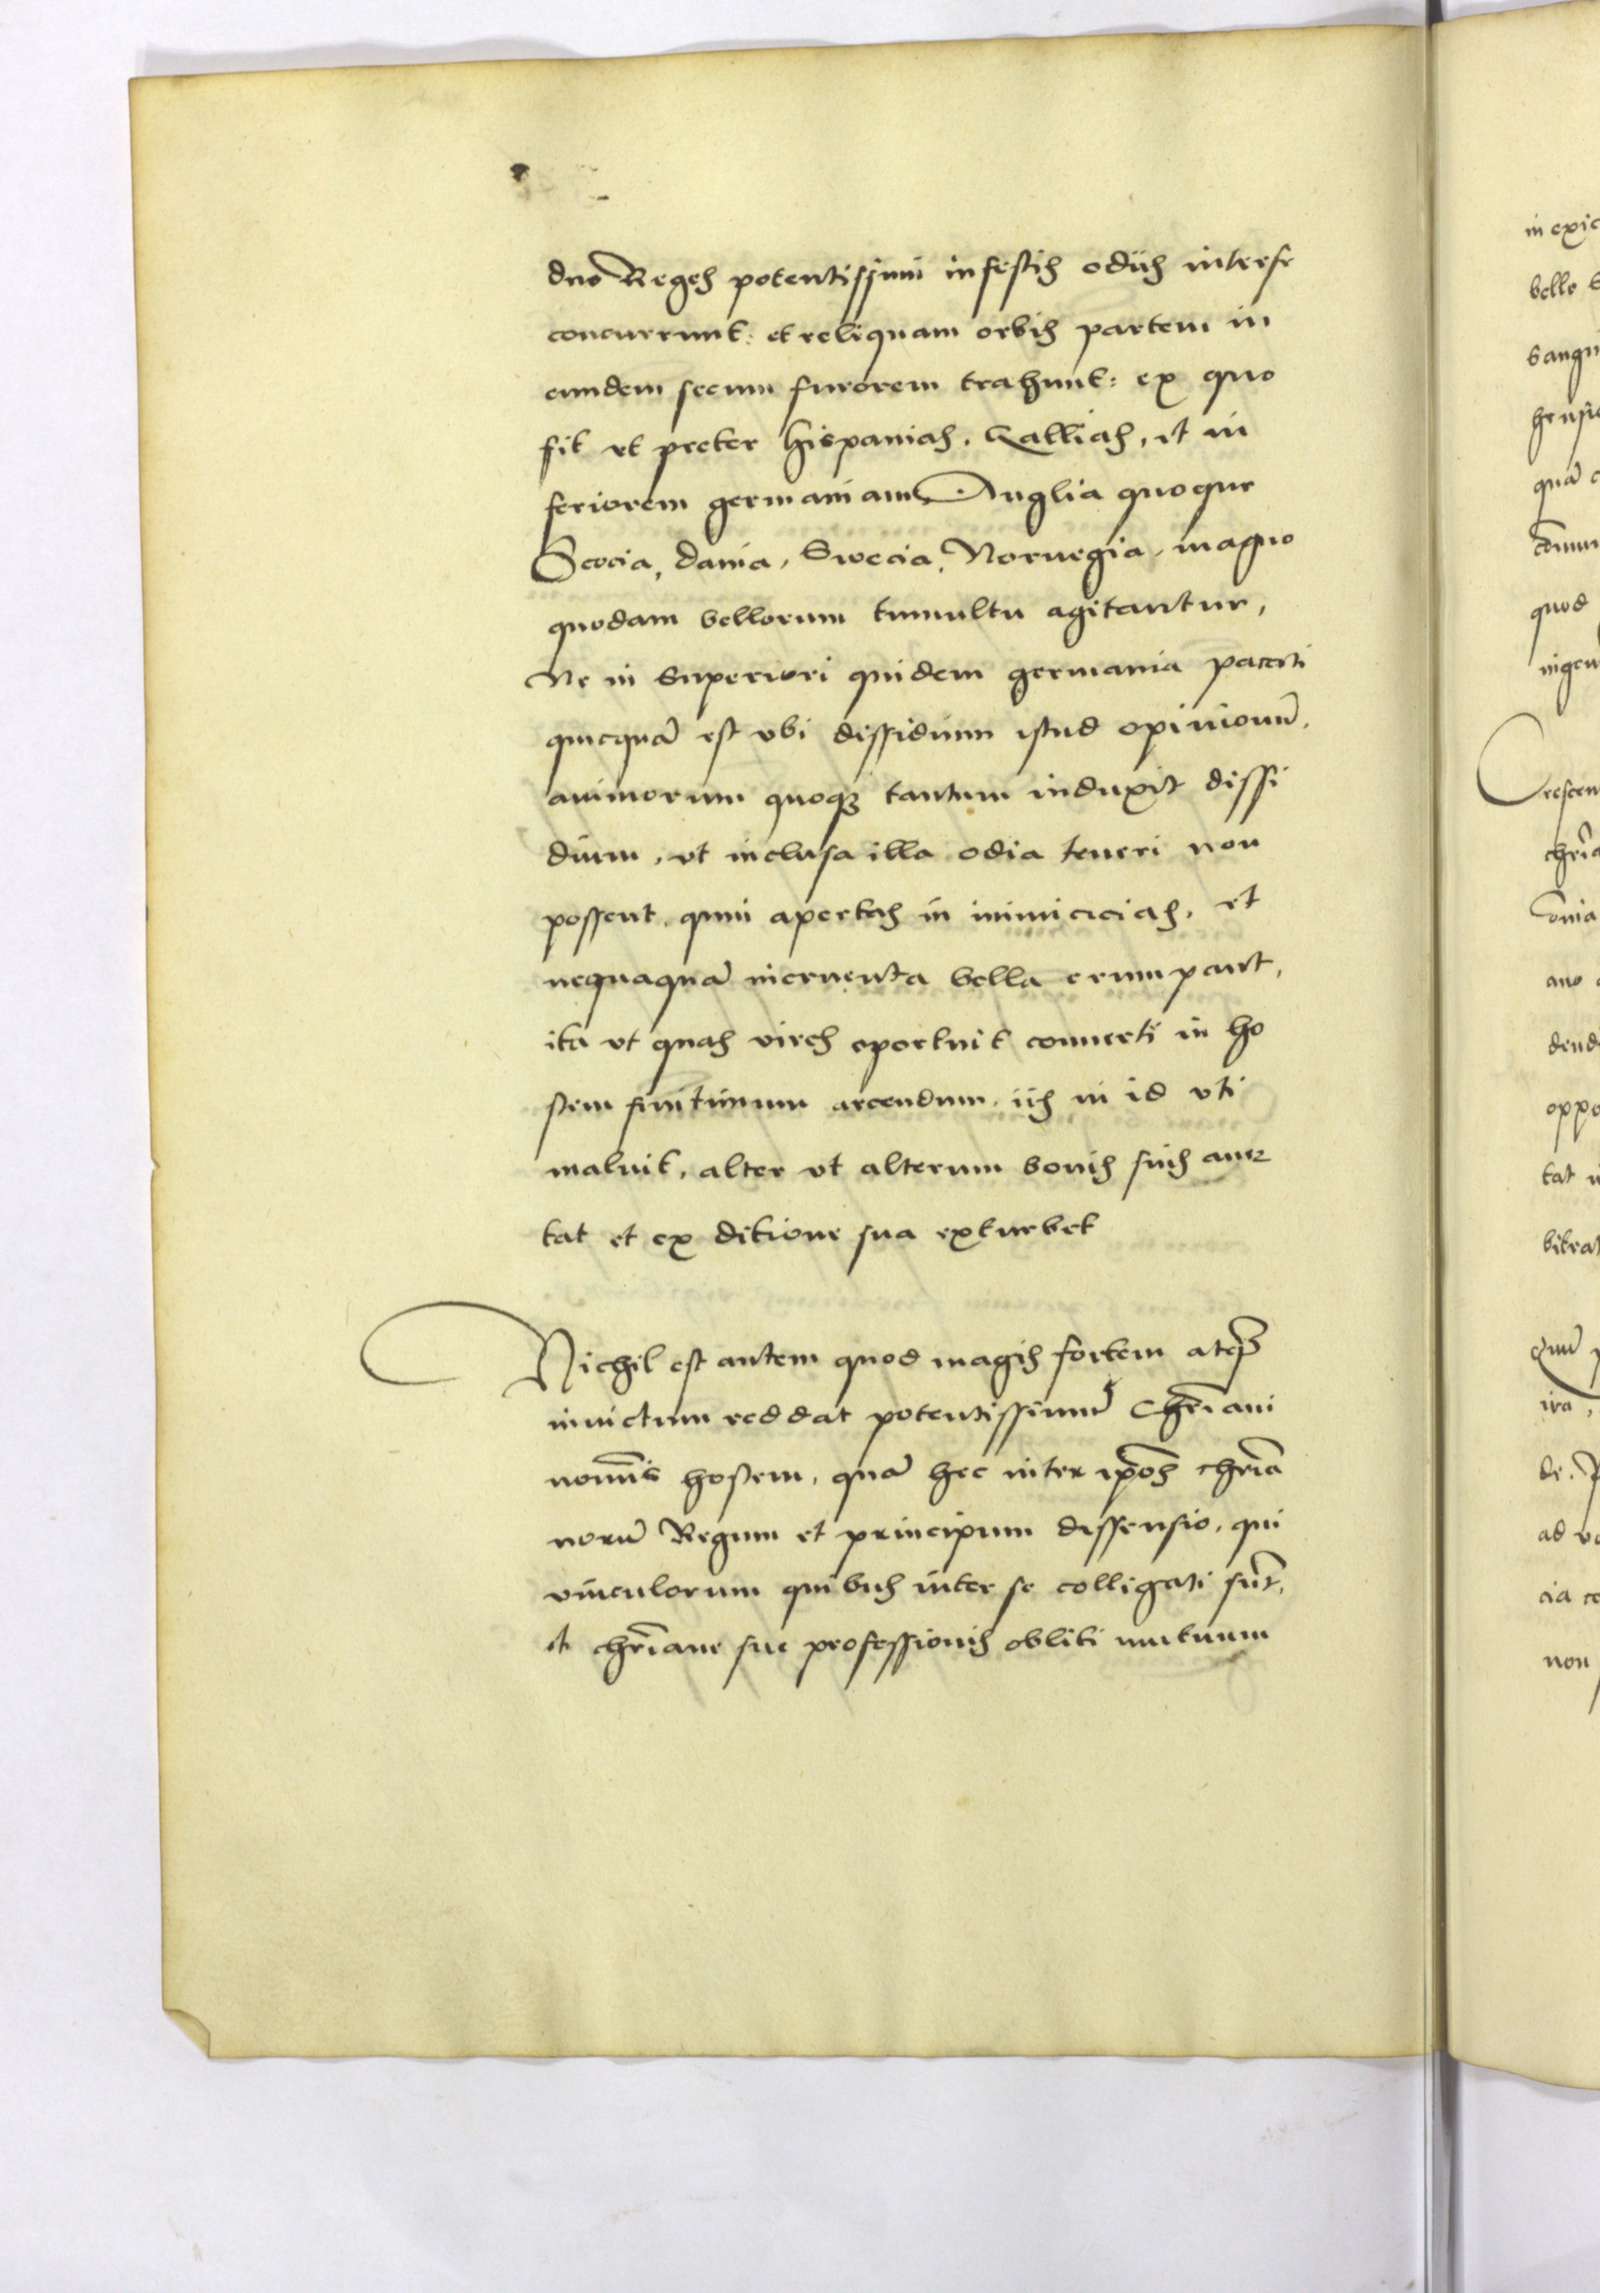 duo Reges potentissimi infestis odiis inter se
concurrunt: et reliquam orbis partem in
eundem secum furorem trahunt: ex quo
fit vt preter hispanias, Gallias, et in
feriorem germaniam Anglia quoque
Scocia, dania, Swecia, Noruegia, magno
quodam bellorum tumultu agitantur,
Ne in Superiori quidem germania pacati
quicquā est vbi dissidium istud opinionū,
animorum quoqꝫ tantum induxit dissi
dium, vt inclusa illa odia teneri non
possent, quin apertas in inimicicias, et
nequaquā incruenta bella erumpant,
ita vt quas vires oportuit conuerti in ho
stem finitimum arcendum, iis in id vti
maluit, alter vt alterum bonis suis auer
tat et ex ditione sua exturbet
Nichil est autem quod magis fortem atqꝫ
inuictum reddat potentissimū Chr̄iani
nom̄is hostem, quā hec inter ip̄os chr̄ia
norū Regum et principum dissensio, qui
vinculorum quibus inter se colligati sūt,
et chr̄iane sue professionis obliti mutuum
in exic
bello
sangui
quā
quod
ingen
Crescen
chr̄ia
oppo
tat
bitrat
ira,
de.
ad
cia
non